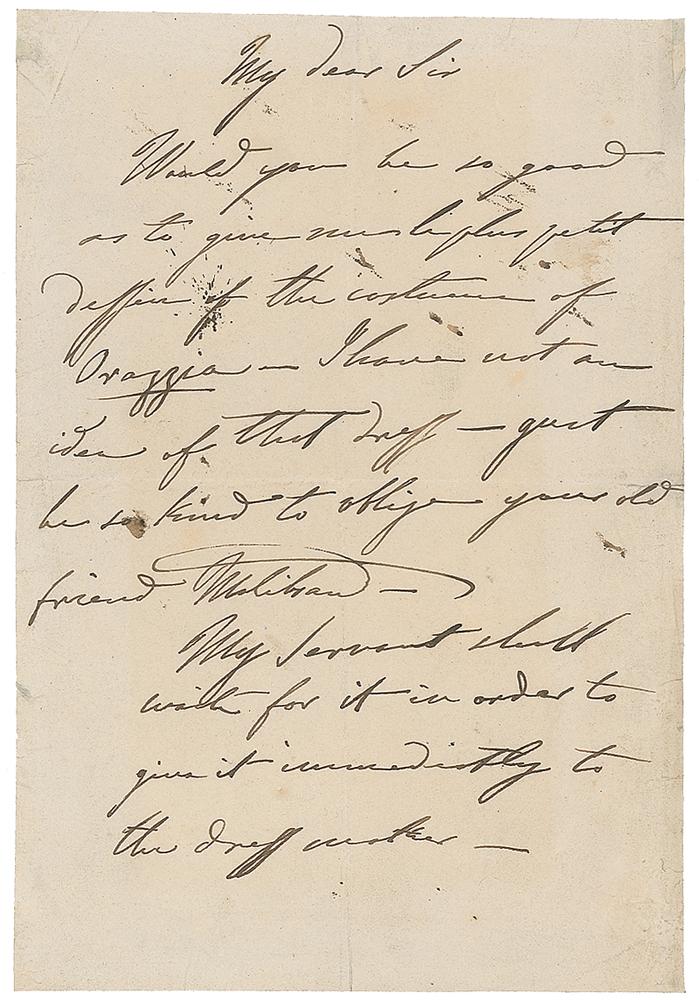 My dear Sir
Would you be so good
as to give me le plus petit
dessin of the costume of
Orazzia — I have not an
idea of that dress — gust
be so kind to oblige your old
friend Malibran —
My servant shall
wait for it in order to
give it immediatly to
the dress maker —